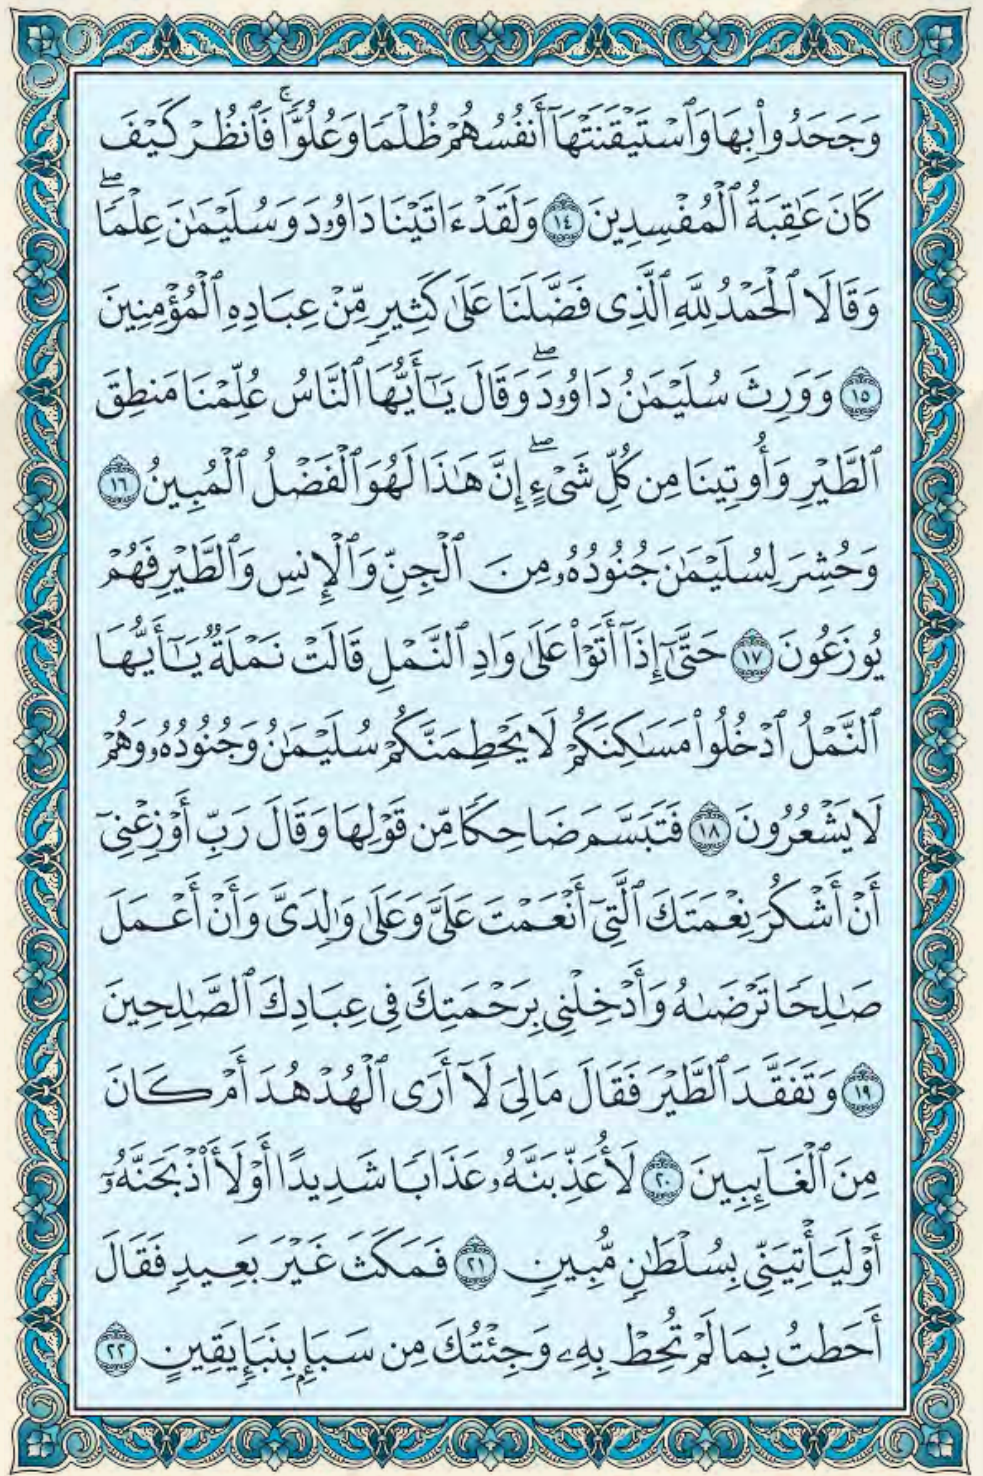 وَجَحَدُوا۟ بِهَا وَٱسْتَيْقَنَتْهَآ أَنفُسُهُمْ ظُلْمًا وَعُلُوًّا ۚ فَٱنظُرْ كَيْفَ
كَانَ عَـٰقِبَةُ ٱلْمُفْسِدِينَ ١٤ وَلَقَدْ ءَاتَيْنَا دَاوُۥدَ وَسُلَيْمَـٰنَ عِلْمًا ۖ
وَقَالَا ٱلْحَمْدُ لِلَّهِ ٱلَّذِى فَضَّلَنَا عَلَىٰ كَثِيرٍ مِّنْ عِبَادِهِ ٱلْمُؤْمِنِينَ
١٥ وَوَرِثَ سُلَيْمَـٰنُ دَاوُۥدَ ۖ وَقَالَ يَـٰٓأَيُّهَا ٱلنَّاسُ عُلِّمْنَا مَنطِقَ
ٱلطَّيْرِ وَأُوتِينَا مِن كُلِّ شَىْءٍ ۖ إِنَّ هَـٰذَا لَهُوَ ٱلْفَضْلُ ٱلْمُبِينُ ١٦
وَحُشِرَ لِسُلَيْمَـٰنَ جُنُودُهُۥ مِنَ ٱلْجِنِّ وَٱلْإِنسِ وَٱلطَّيْرِ فَهُمْ
يُوزَعُونَ ١٧ حَتَّىٰٓ إِذَآ أَتَوْا۟ عَلَىٰ وَادِ ٱلنَّمْلِ قَالَتْ نَمْلَةٌ يَـٰٓأَيُّهَا
ٱلنَّمْلُ ٱدْخُلُوا۟ مَسَـٰكِنَكُمْ لَا يَحْطِمَنَّكُمْ سُلَيْمَـٰنُ وَجُنُودُهُۥ وَهُمْ
لَا يَشْعُرُونَ ١٨ فَتَبَسَّمَ ضَاحِكًا مِّن قَوْلِهَا وَقَالَ رَبِّ أَوْزِعْنِىٓ
أَنْ أَشْكُرَ نِعْمَتَكَ ٱلَّتِىٓ أَنْعَمْتَ عَلَىَّ وَعَلَىٰ وَٰلِدَىَّ وَأَنْ أَعْمَلَ
صَـٰلِحًا تَرْضَىٰهُ وَأَدْخِلْنِى بِرَحْمَتِكَ فِى عِبَادِكَ ٱلصَّـٰلِحِينَ
١٩ وَتَفَقَّدَ ٱلطَّيْرَ فَقَالَ مَا لِىَ لَآ أَرَى ٱلْهُدْهُدَ أَمْ كَانَ
مِنَ ٱلْغَآئِبِينَ ٢٠ لَأُعَذِّبَنَّهُۥ عَذَابًا شَدِيدًا أَوْ لَأَا۟ذْبَحَنَّهُۥٓ
أَوْ لَيَأْتِيَنِّى بِسُلْطَـٰنٍ مُّبِينٍ ٢١ فَمَكَثَ غَيْرَ بَعِيدٍ فَقَالَ
أَحَطتُ بِمَا لَمْ تُحِطْ بِهِۦ وَجِئْتُكَ مِن سَبَإٍۭ بِنَبَإٍ يَقِينٍ ٢٢